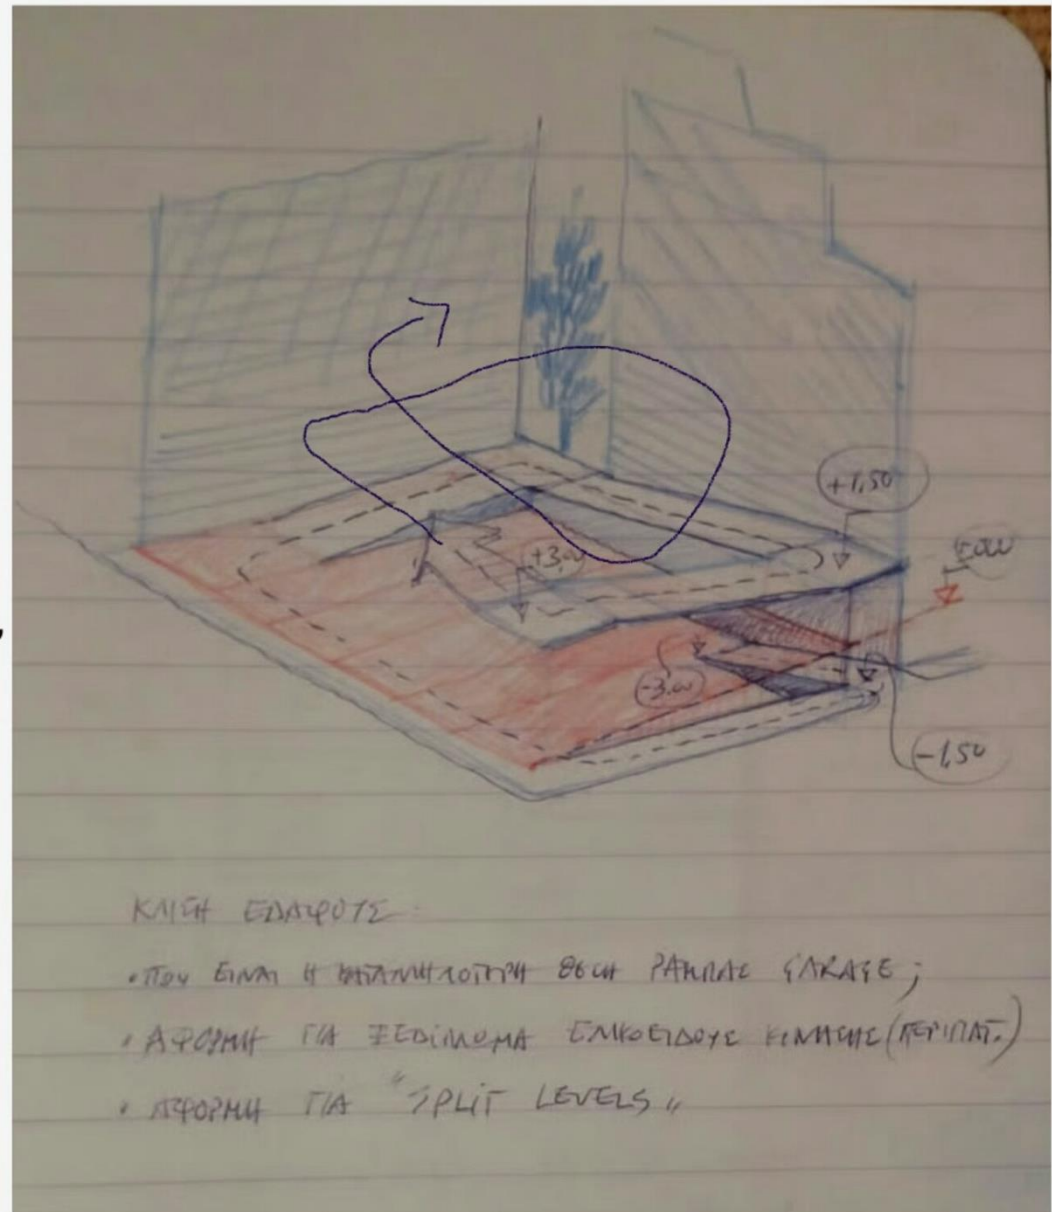 +1,50
±0.00
+3,00
-3.00
-1,50
ΚΛΙΣΗ ΕΔΑΦΟΥΣ:
• ΠΟΥ ΕΙΝΑΙ Η ΚΑΤΑΛΛΗΛΟΤΕΡΗ ΘΕΣΗ ΡΑΜΠΑΣ GARAGE;
• ΑΦΟΡΜΗ ΓΙΑ ΞΕΔΙΠΛΩΜΑ ΕΛΙΚΟΕΙΔΟΥΣ ΚΙΝΗΣΗΣ (ΠΕΡΙΠΑΤ.)
• ΑΦΟΡΜΗ ΓΙΑ "SPLIT LEVELS"